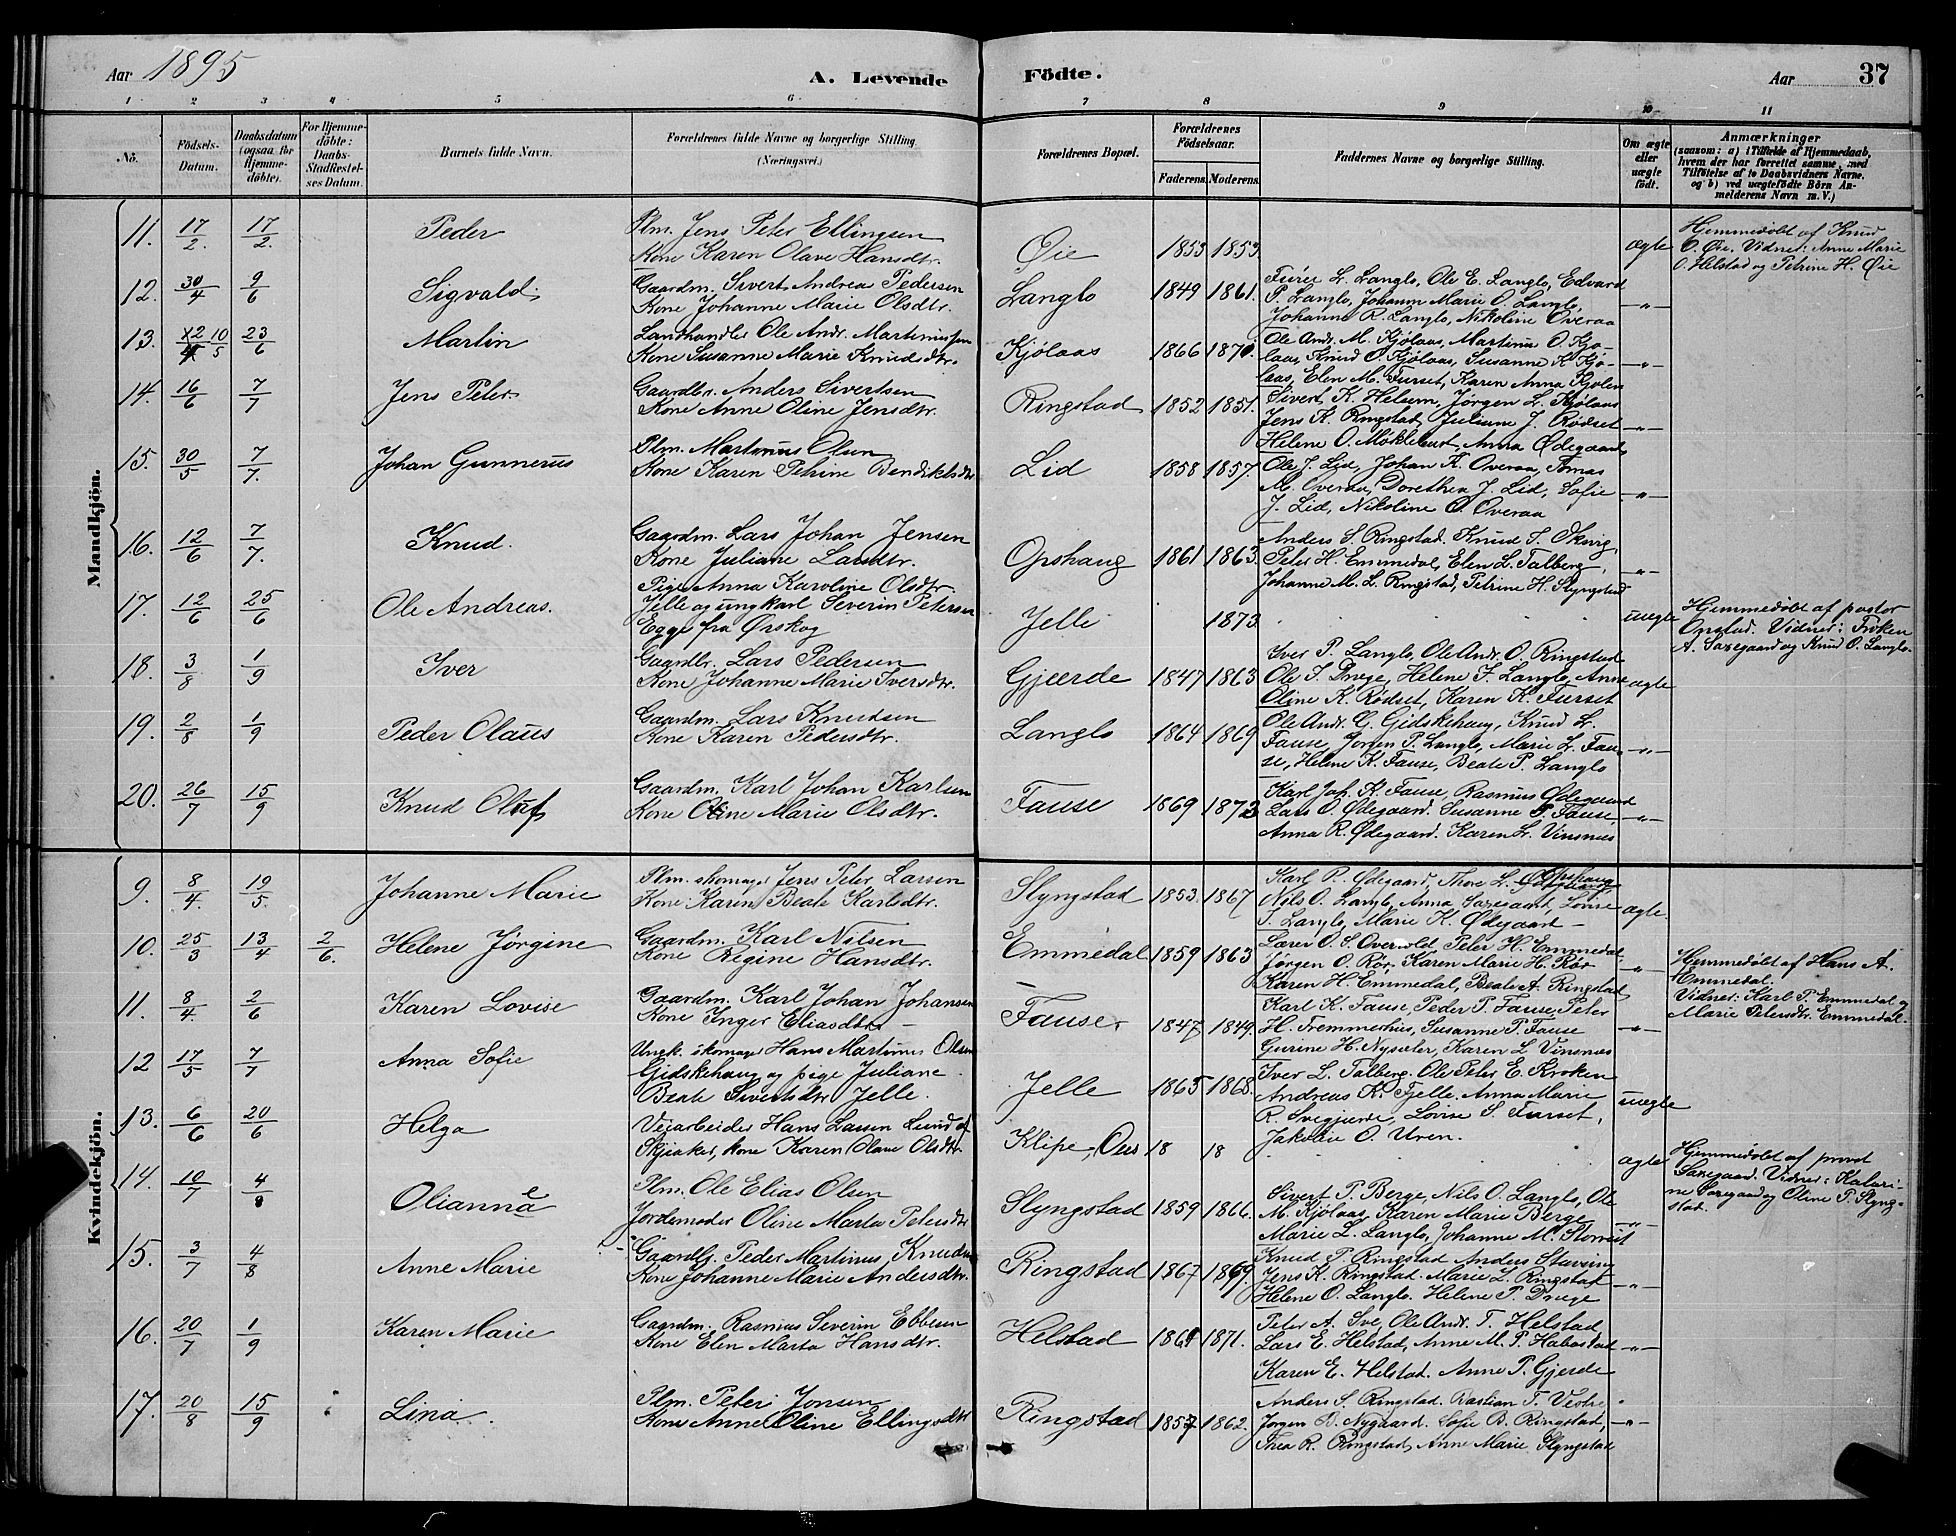 Aar 1895
A. Levende Födte.
Aar 37
1 2 3 4 5 6 7 8 9 10 11
Nö.
Födsels-Datum.
Daabsdatum (ogsaa for Hjemme-döbte).
For Hjemme-döbte: Daabs-Stadfæstel-ses Datum.
Barnets fulde Navn.
Forældrenes fulde Navne og borgerlige Stilling (Næringsvei.)
Forældrenes Bopæl.
Forældrenes Födselsaar.
Faderens. Moderens.
Faddernes Navne og borgerlige Stilling.
Om ægte eller uægte födt.
Anmærkninger
(saasom: a) i Tilfælde af Hjemmedaab, hvem der har forrettet samme, med Tilföielse af to Daabsvidners Navne, og b) ved uægtefödte Börn An-melderens Navn m. V.)
Mandkjön.
11. 17/2 17/2. Peder
Plm. Jens Peter Ellingsen
Kone Karen Olave Hansdtr.
Øie 1853 1853 ægte
Hjemmedøbt af Knud
O. Øie. Vidner: Anne Marie
O. Helstad og Petrine H. Øie
12. 30/4 9/6 Sigvald
Gaardm. Sivert Andrea Pedersen
Kone Johanne Marie Olsdtr.
Langlo 1849 1861.
L. Langlo, Ole E. Langlo, Edvard
P. Langlo, Johann Marie O. Langlo,
Johanne R. Langlo, Nikoline Overaa
-"-
13. 10/5 23/6 Martin
Landhandler Ole Andr. Martinussen
Kone Susanne Marie Knudsdtr.
Kjølaas 1866 1870.
Ole Andr. M. Kjölaas, Martinus O. Kjö-
laas, Knud O. Kjölaas, Susanne K. Kjö-
laas, Elen M. Furset, Karen Anna Kjolen
-"-
14. 16/6 7/7 Jens Peter
Gaardbr. Anders Sivertsen
Kone Anne Oline Jensdtr.
Ringstad 1852 1851.
Sivert K. Helsem, Jörgen L. Kjölaas
Jens K. Ringstad, Juliane J. Rödset
Helene O. Möklebust, Anna Ödegaard
-"-
15. 30/5 7/7. Johan Gunnerus
Plm. Martinus Olsen
Kone Karen Petrine Bendiktsdtr
Lid 1858 1857.
Ole J. Lid, Johan K. Overaa, Tomas
M. Overaa, Dorethea J. Lid, Sofie
J. Lid, Nikoline O. Overaa
-"-
16. 12/6 7/7. Knud.
Gaardm. Lars Johan Jensen
Kone Juliane Larsdtr.
Opshaug 1861 1863.
Anders S. Ringstad. Knud S. Økvig,
Peter H. Emmedal, Elen L. Talberg,
Johanne M. L. Ringstad, Petrine H. Slyngstad
-"-
17. 12/6 25/6 Ole Andreas.
Pige Anna Karoline Olsdtr.
Jelle og ungkarl Severin Petersen
Egge fra Ørskog
Jelle 1873 uægte
Hjemmedøbt af pastor
Opstad. Vidner: Frøken
A. Saxegaard og Knud O. Langlo.
18. 3/8 1/9 Iver
Gaardbr. Lars Pedersen
Kone Johanne Marie Iversdtr.
Gjærde 1847 1863
Iver P. Langlo, Ole Andr. O. Ringstad
Ole J. Druge, Helene J. Langlo, Anne
Oline K. Rödset, Karen K. Furset
ægte
19. 2/8 1/9 Peder Olaus
Gaardm. Lars Knudsen
Kone Karen Pedersdtr.
Langlo 1864 1869
Ole Andr. C. Gidskehaug, Knud L.
Fause, Jörgen P. Langlo, Marie L. Fau-
se, Helene K. Fause, Beate P. Langlo
-"-
20. 26/7 15/9 Knud Oluf
Gaardm. Karl Johan Karlsen
Kone Oline Marie Olsdtr.
Fause 1869 1873
Karl Joh. K. Fause, Rasmus Ødegaard
Lars O. Ødegaard. Susanne P. Fause
Anna R. Ødegaard. Karen L. Vinsnæs
-"-
Kvindekjön.
9. 8/4. 19/5. Johanne Marie
Plm. skomager Jens Peter Larsen
Kone Karen Beate Karlsdtr.
Slyngstad 1853. 1867
Karl P. Ødegaard, Thore L. Opshaug
Nils O. Langlo, Anna Saxegaard, Lovise
P. Langlo, Marie K. Ødegaard
ægte.
10. 25/3 13/4 2/6. Helene Jørgine
Gaardm. Karl Nilsen
Kone Regine Hansdtr.
Emmedal 1859 1863
Lærer O. S. Overvold, Peter H. Emmedal,
Jørgen O. Rör, Karen Marie H. Rör
Karen H. Emmedal, Beate A. Ringstad
-"-
Hjemmedøbt af Hans A.
Emmedal.
Vidner: Karl P. Emmedal og
Marie Petersdtr. Emmedal.
11. 8/4. 2/6 Karen Lovise
Gaardm. Karl Johan Johansen
Kone Inger Eliasdtr
Fause 1847 1849.
Karl K. Fause, Peder P. Fause, Peter
H. Tremmerhus, Susanne P. Fause
Gurine H. Nysæter, Karen L. Vinsnæs
-"-
12 17/5 7/7 Anna Sofie
Ungk. skomager Hans Martinus Olsen
Gidskehaug og pige Juliane
Beate Sivertsdtr Jelle.
Jelle 1865 1868.
Iver L. Talberg. Ole Peter E. Kroken
Andreas K. Fjelle, Anna Marie
R. Svegjerde, Lovise S. Furset,
Jakobie O. Uren.
uægte
13. 6/6 20/6 Helga
Veiarbeider Hans Larsen Lund af
Skjiaker, kone Karen Olave Olsdtr
Klipe, Ous 18 18
ægte
Hjemmedøbt af provst
Saxegaard. Vidner: Katari-
ne Saxegaard og Oline P. Slyng-
stad.
14. 10/7 4/8 Olianna
Plm. Ole Elias Olsen
Jordemoder Oline Marta Petersdtr
Slyngstad 1859 1866.
Sivert P. Berge, Nils O. Langlo, Ole
M. Kjölaas, Karen Marie Berge
Marie L. Langlo, Johanne M.
-"-
15. 3/7 4/8 Anne Marie
Gaardbr. Peder Martinus Knudsen
Kone Johanne Marie Andersdtr.
Ringstad 1867 1869.
Knud P. Ringstad Anders Stavring
Jens K. Ringstad. Marie L. Ringstad
Helene O. Langlo. Helene P. Druge
-"-
16. 20/7 1/9 Karen Marie
Gaardm. Rasmus Severin Ebbesen
Kone Elen Marta Hansdtr.
Helstad 1869 1871.
Peter A. Sve, Ole Andr. T. Helstad
Lars E. Helstad, Anne M. P. Habostad
Karen E. Helstad. Anne P. Gjerde
-"-
17. 20/8 15/9 Lina
Plm. Peter Jonsen
Kone Anne Oline Ellingsdtr
Ringstad 1857 1862.
Anders S. Ringstad. Bastian T. Vestre
Jørgen B. Nygaard. Sofie B. Ringstad,
Thea R. Ringstad, Anne Marie Slyngstad
-"-